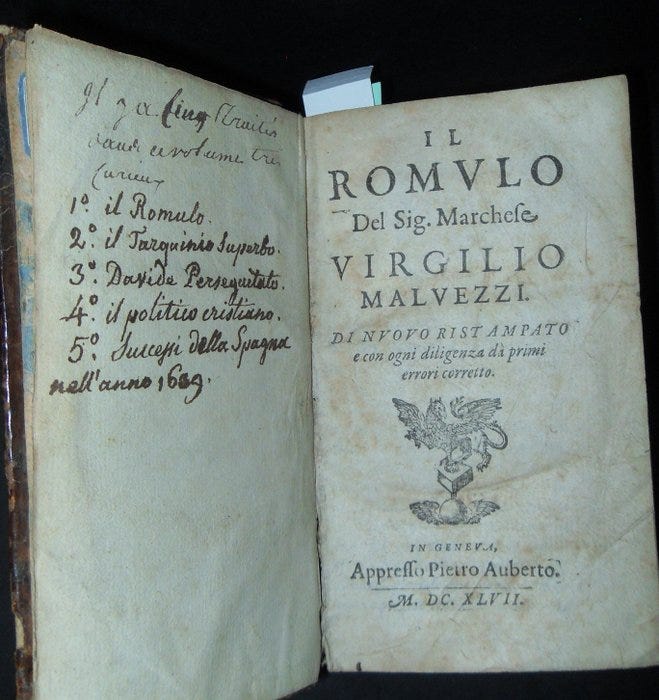 Il y a Cinq Traités
dans ce volume tres
Curieux
1º. il Romulo.
2º. il Tarquinio Superbo.
3º. Davide Perseguitato.
4º. il politico cristiano.
5º. Successi della Spagna
nell'anno 1639.
IL
ROMVLO
Del Sig. Marcheſe
VIRGILIO
MALVEZZI.
DI NVOVO RISTAMPATO
e con ogni diligenza dà primi
errori corretto.
IN GENEVA,
Appreſſo Pietro Auberto.
M. DC. XLVII.